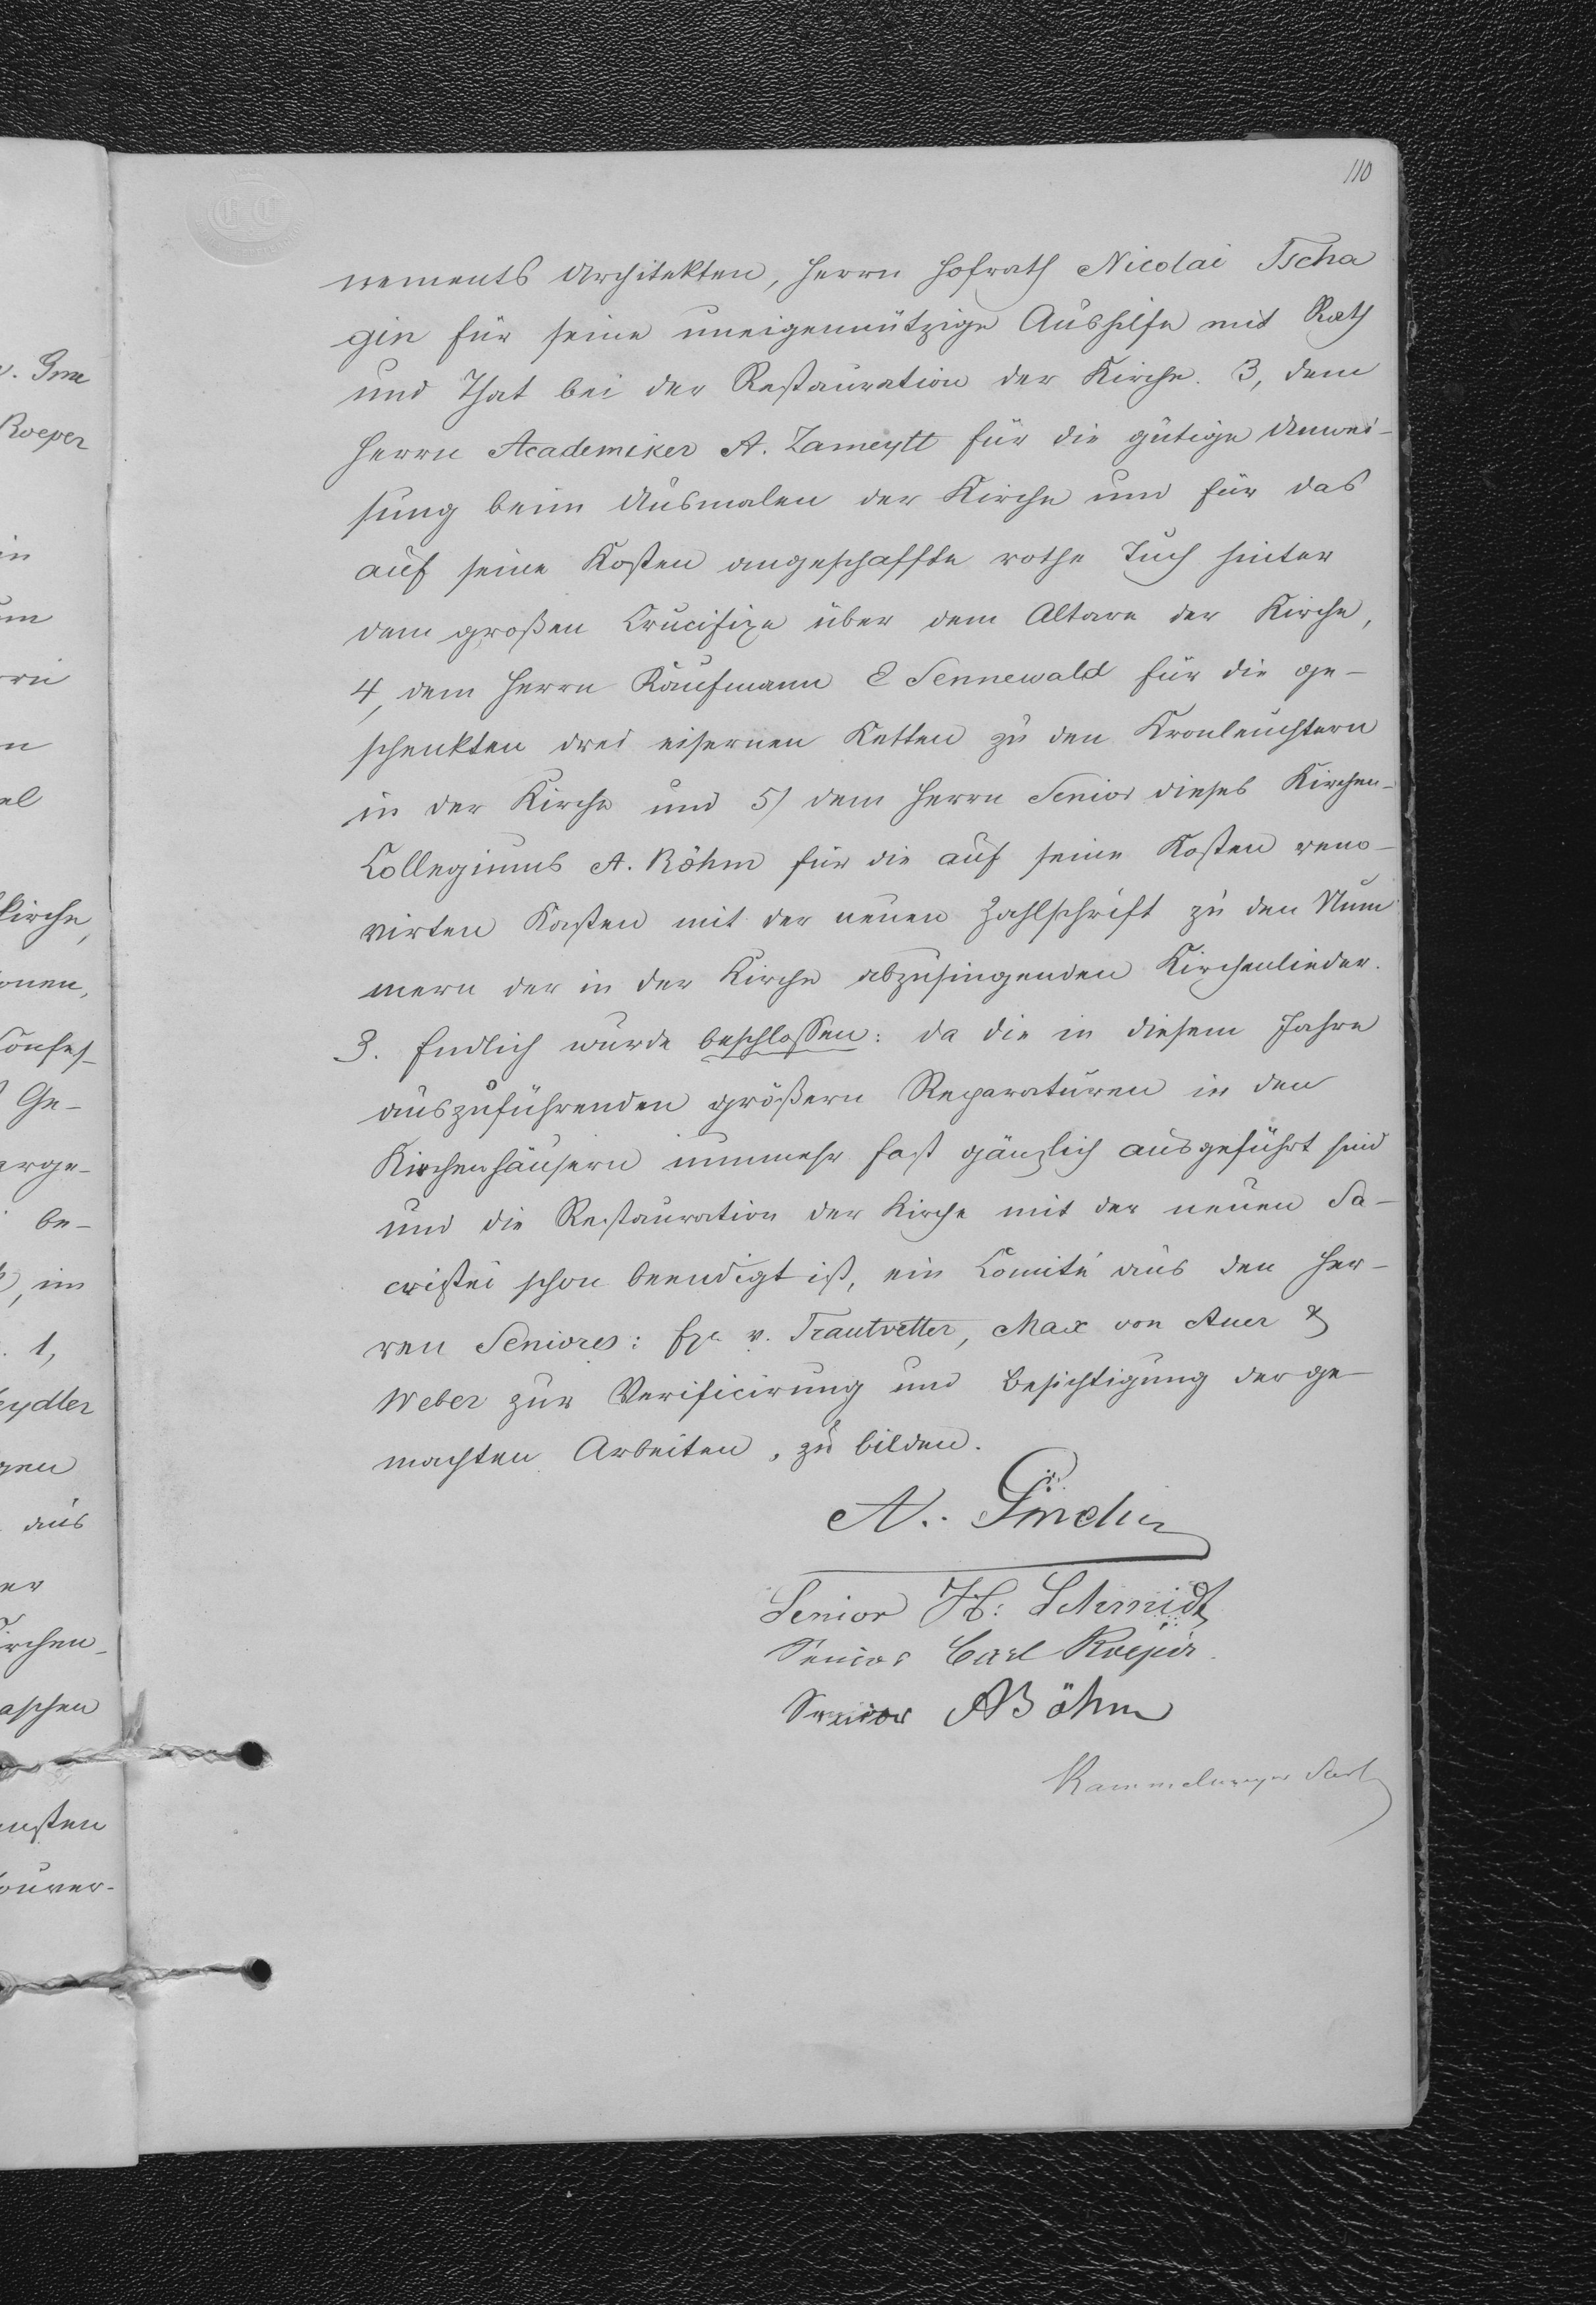 110
nements Architekten, Herrn Hofrath Nicolai Tscha
gin für seine uneigennützige Aushilfe mit Rath
und That bei der Restauration der Kirche. 3, dem
Herrn Academiker A. Zameytt für die gütige Anwei-
sung beim Ausmalen der Kirche und für das
auf seine Kosten angeschaffte rothe Tuch hinter
dem großen Crucifixe über dem Altare der Kirche,
4, dem Herrn Kaufmann E Sennewald für die ge-
schenkten drei eisernen Ketten zu den Kronleuchtern
in der Kirche und 5) dem Herrn Senior dieses Kirchen-
Collegiums A. Böhm für die auf seine Kosten reno-
virten Kasten mit der neuen Zahlschrift zu den Num
mern der in der Kirche abzusingenden Kirchenlieder.
3. Endlich wurde beschlossen: da die in diesem Jahre
auszuführenden größern Reparaturen in den
Kirchenhäusern nunmehr fast gänzlich ausgeführt sind
und die Restauration der Kirche mit der neuen Sa-
cristei schon beendigt ist, ein Comité aus den Her-
ren Seniores: v. Trautvetter, Max von Auer &
Weber zur Verificirung und Besichtigung der ge-
machten Arbeiten, zu bilden.
Senior H. Schmidt
Senior Carl Roeper
Senior ABöhm
v. Gm
Roeper
in
um
n
el
Kirche,
onen,
Confes-
Ge-
arge-
be-
, im
1,
eydler
gen
aus
er
irchen-
aschen
nsten
ouver-